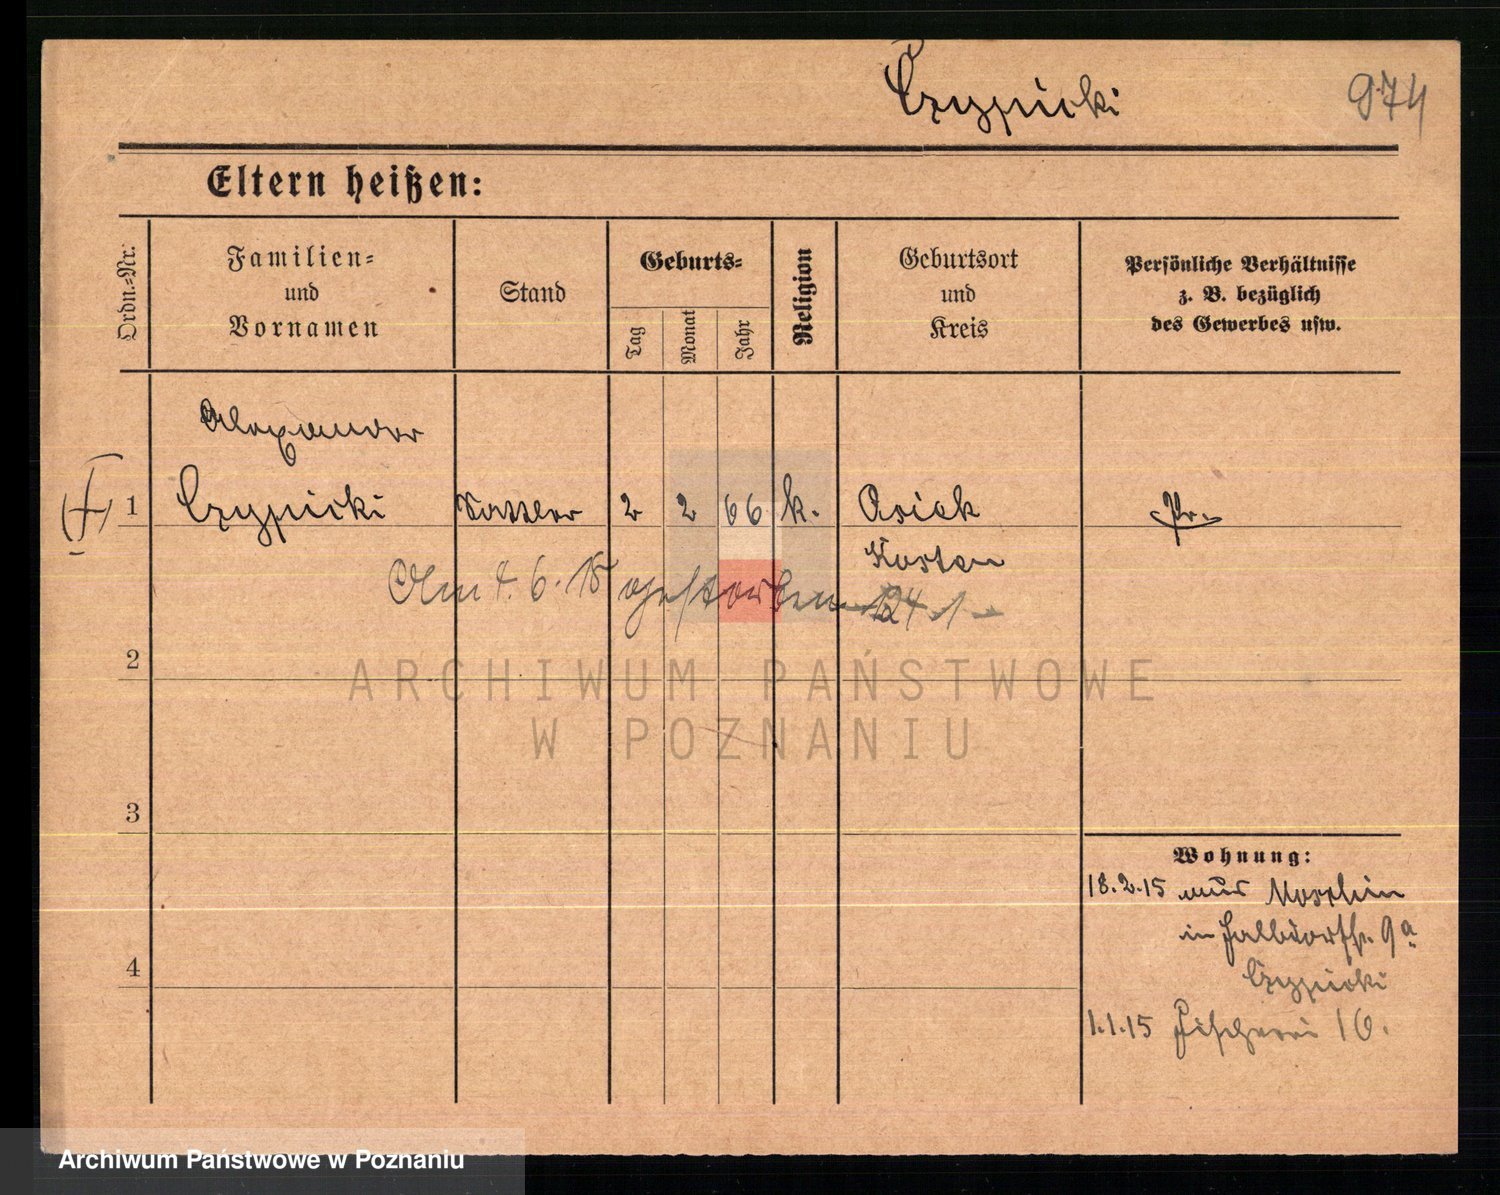 Czypicki 974
Eltern heißen:
Ordn.-Nr.
Familien-
und
Vornamen
Stand
Geburts-
Tag
Monat
Jahr
Religion
Geburtsort
und
Kreis
Persönliche Verhältnisse
z. B. bezüglich
des Gewerbes usw.
Alexander
1 Czypicki Sattler 2 2 66 k. Racick Pr.
Kosten
Am 4. 6. 15 gestorben
2
3
4
Wohnung:
18.2.15 aus Moschin
in Halbdorfstr. 9a
Czypicki
1.1.15 Fischerei 16.
ARCHIWUM PAŃSTWOWE
W POZNANIU
Archiwum Państwowe w Poznaniu